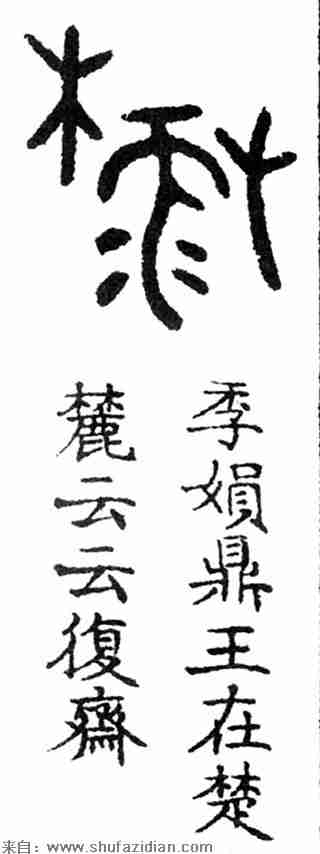 季㜏鼎王在楚
麓云云復齋
来自：www.shufazidian.com